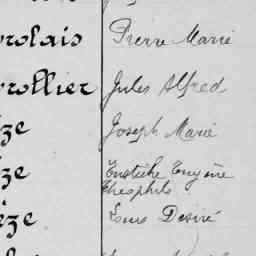 rolais Pierre Marie
rollier Jules Alfred
ze Joseph Marie
ze Eustache Eugène
Théophile
èze Louis Désiré